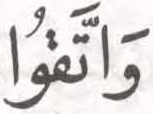 وَاتَّقُوا